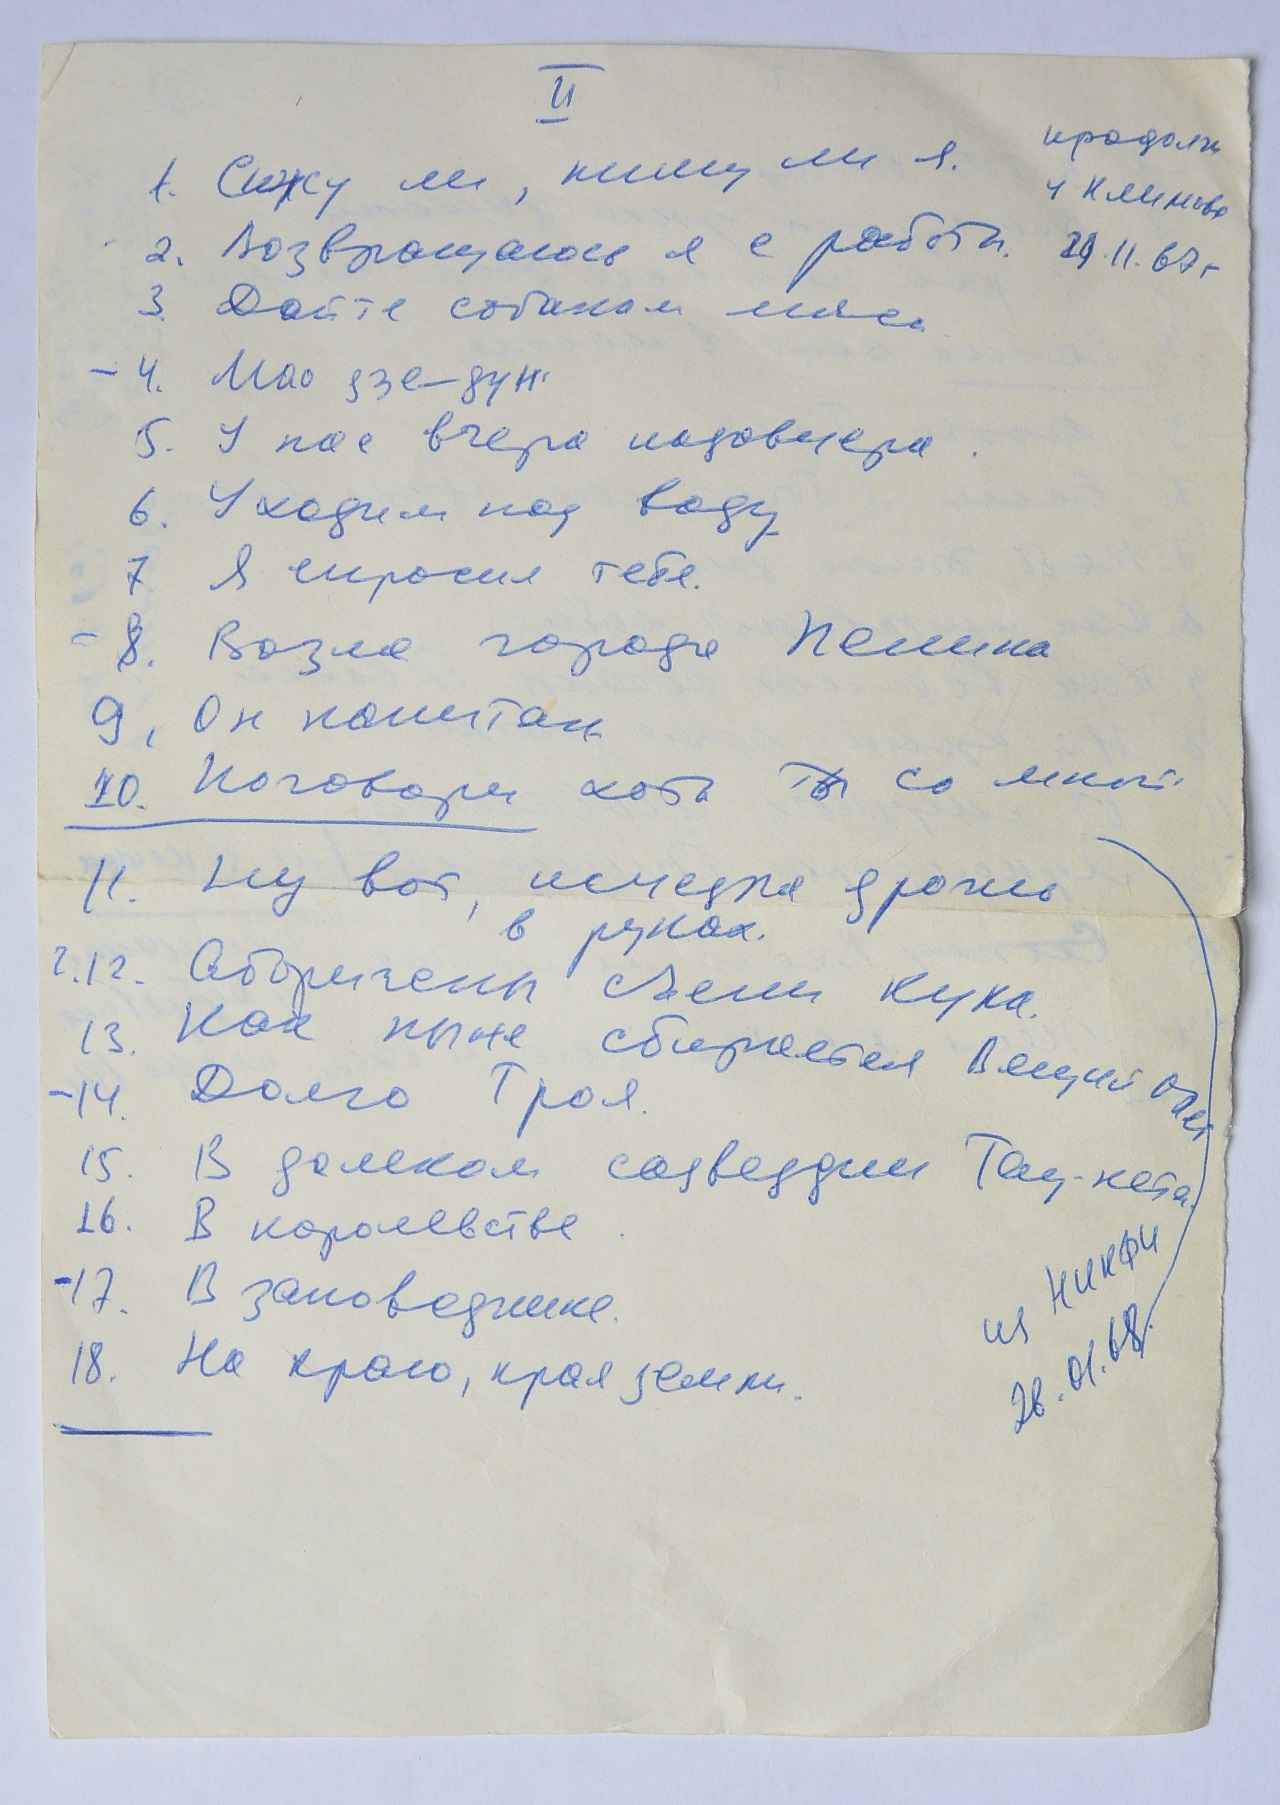 II
1. Сижу ли, пишу ли я.
продолж
у Климова
2. Возвращаюсь я с работы.
29.11.67г
3. Дайте собакам мяса
- 4. Мао Дзе-дун
5. У нас вчера позавчера.
6. Уходим под воду
7 Я спросил тебя.
- 8. Возле города Пекина
9, Он капитан
10. Поговори хоть ты со мной
11. Ну вот, исчезла дрожь
в руках.
?.12. Аборигены съели Кука.
13. Как ныне сбирается Вещий Олег
-14. Долго Троя.
15. В далеком созвездии Тау-кета.
16. В королевстве.
-17. В заповеднике.
18. На краю, края земли.
из НИКФИ
28.01.68.